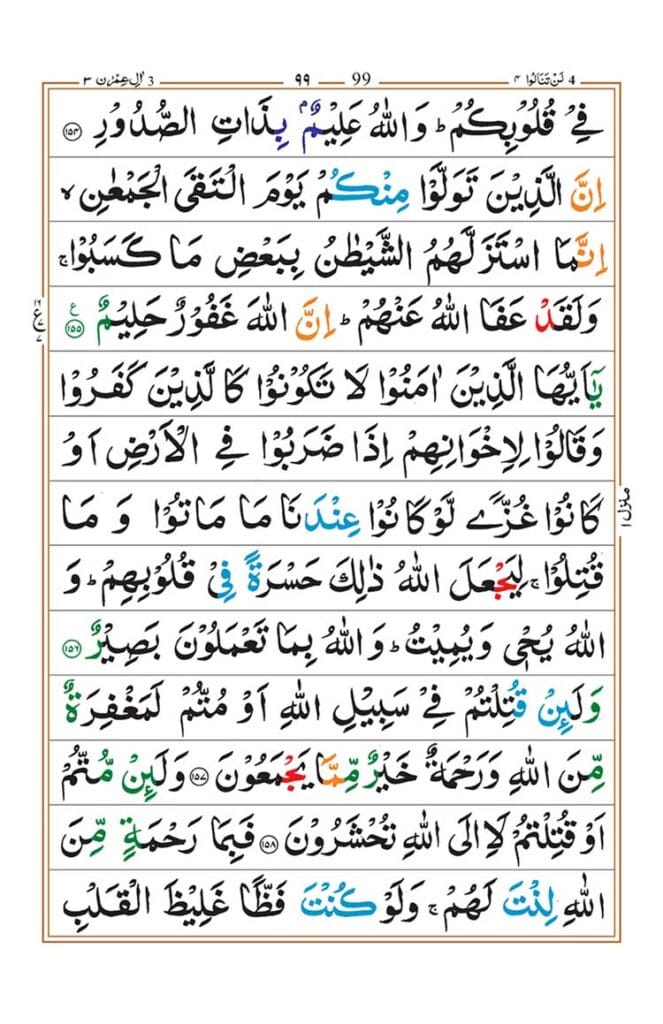 4 لَنْ تَنَالُوا ۴ 99 ۹۹ 3 اٰلِ عِمْرٰن ۳
فِیْ قُلُوْبِكُمْ ؕ وَاللّٰهُ عَلِیْمٌۢ بِذَاتِ الصُّدُوْرِ ۝۱۵۴
اِنَّ الَّذِیْنَ تَوَلَّوْا مِنْكُمْ یَوْمَ الْتَقَی الْجَمْعٰنِ ۙ
اِنَّمَا اسْتَزَلَّهُمُ الشَّیْطٰنُ بِبَعْضِ مَا كَسَبُوْا ۚ
وَلَقَدْ عَفَا اللّٰهُ عَنْهُمْ ؕ اِنَّ اللّٰهَ غَفُوْرٌ حَلِیْمٌ ۝۱۵۵ ع
یٰۤاَیُّهَا الَّذِیْنَ اٰمَنُوْا لَا تَكُوْنُوْا كَالَّذِیْنَ كَفَرُوْا
وَقَالُوْا لِاِخْوَانِهِمْ اِذَا ضَرَبُوْا فِی الْاَرْضِ اَوْ
كَانُوْا غُزًّی لَّوْ كَانُوْا عِنْدَنَا مَا مَاتُوْا وَ مَا
منزل ۱
قُتِلُوْا ۚ لِیَجْعَلَ اللّٰهُ ذٰلِكَ حَسْرَةً فِیْ قُلُوْبِهِمْ ؕ وَ
اللّٰهُ یُحْیٖ وَیُمِیْتُ ؕ وَاللّٰهُ بِمَا تَعْمَلُوْنَ بَصِیْرٌ ۝۱۵۶
وَلَىِٕنْ قُتِلْتُمْ فِیْ سَبِیْلِ اللّٰهِ اَوْ مُتُّمْ لَمَغْفِرَةٌ
مِّنَ اللّٰهِ وَرَحْمَةٌ خَیْرٌ مِّمَّا یَجْمَعُوْنَ ۝۱۵۷ وَلَىِٕنْ مُّتُّمْ
اَوْ قُتِلْتُمْ لَاِالَی اللّٰهِ تُحْشَرُوْنَ ۝۱۵۸ فَبِمَا رَحْمَةٍ مِّنَ
اللّٰهِ لِنْتَ لَهُمْ ۚ وَلَوْ كُنْتَ فَظًّا غَلِیْظَ الْقَلْبِ